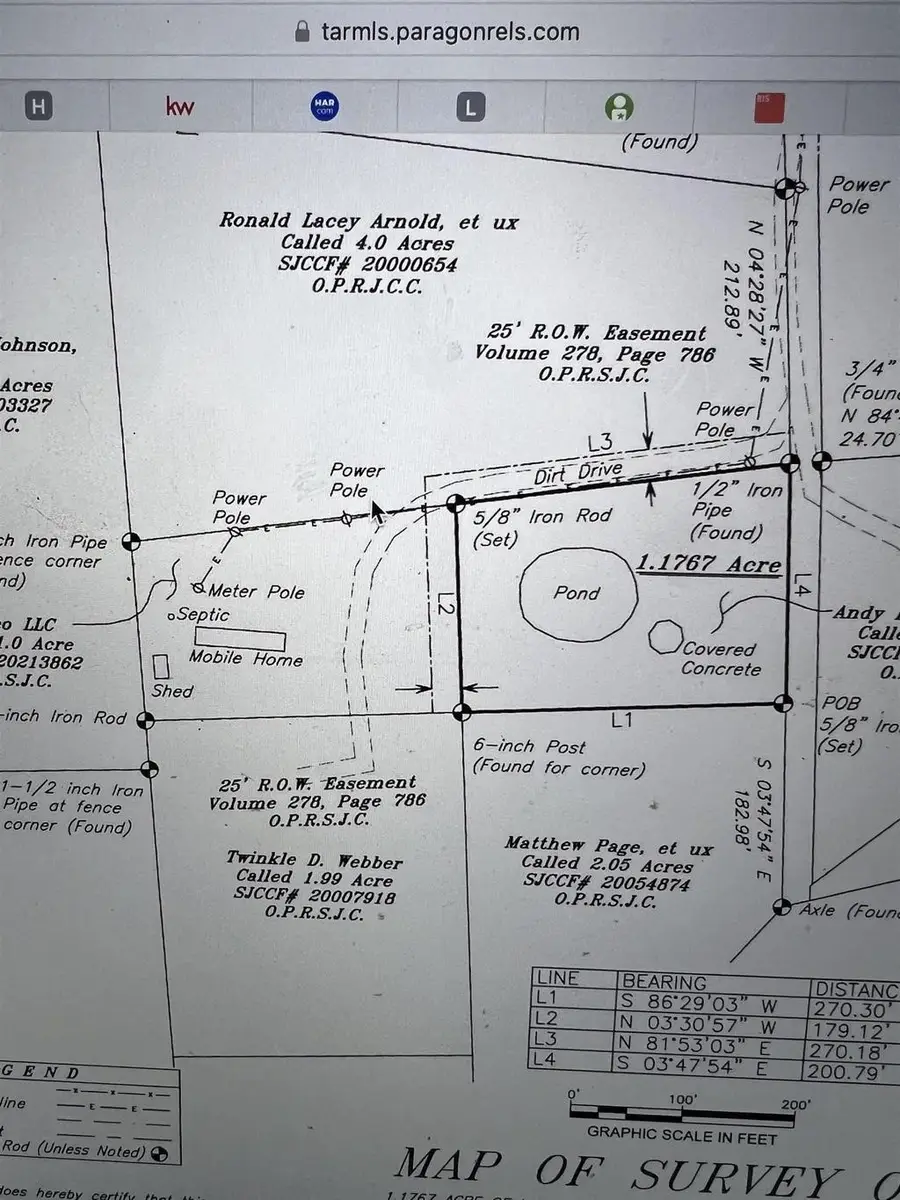 tarmls.paragonrels.com
H
kw
HAR
com
L
(Found)
Power
Pole
Ronald Lacey Arnold, et ux
Called 4.0 Acres
SJCCF# 20000654
O.P.R.J.C.C.
N 04°28'27" W
212.89'
ohnson,
Acres
03327
.C.
25' R.O.W. Easement
Volume 278, Page 786
O.P.R.S.J.C.
3/4"
(Foun
N 84°
24.70'
Power
Pole
L3
Dirt Drive
Power
Pole
Power
Pole
1/2" Iron
Pipe
(Found)
5/8" Iron Rod
(Set)
ch Iron Pipe
ence corner
nd)
1.1767 Acre
Meter Pole
Septic
Pond
L2
L4
o LLC
1.0 Acre
20213862
.S.J.C.
Mobile Home
Shed
Covered
Concrete
Andy
Calle
SJCCF
O.
-inch Iron Rod
L1
POB
5/8" Iro
(Set)
6-inch Post
(Found for corner)
1-1/2 inch Iron
Pipe at fence
corner (Found)
25' R.O.W. Easement
Volume 278, Page 786
O.P.R.S.J.C.
S 03°47'54" E
182.98'
Twinkle D. Webber
Called 1.99 Acre
SJCCF# 20007918
O.P.R.S.J.C.
Matthew Page, et ux
Called 2.05 Acres
SJCCF# 20054874
O.P.R.S.J.C.
Axle (Foun
LINE BEARING DISTANC
L1 S 86°29'03" W 270.30'
L2 N 03°30'57" W 179.12'
L3 N 81°53'03" E 270.18'
L4 S 03°47'54" E 200.79'
GEND
line
E E
t
Rod (Unless Noted)
0' 100' 200'
GRAPHIC SCALE IN FEET
MAP OF SURVEY O
does hereby certify that thi